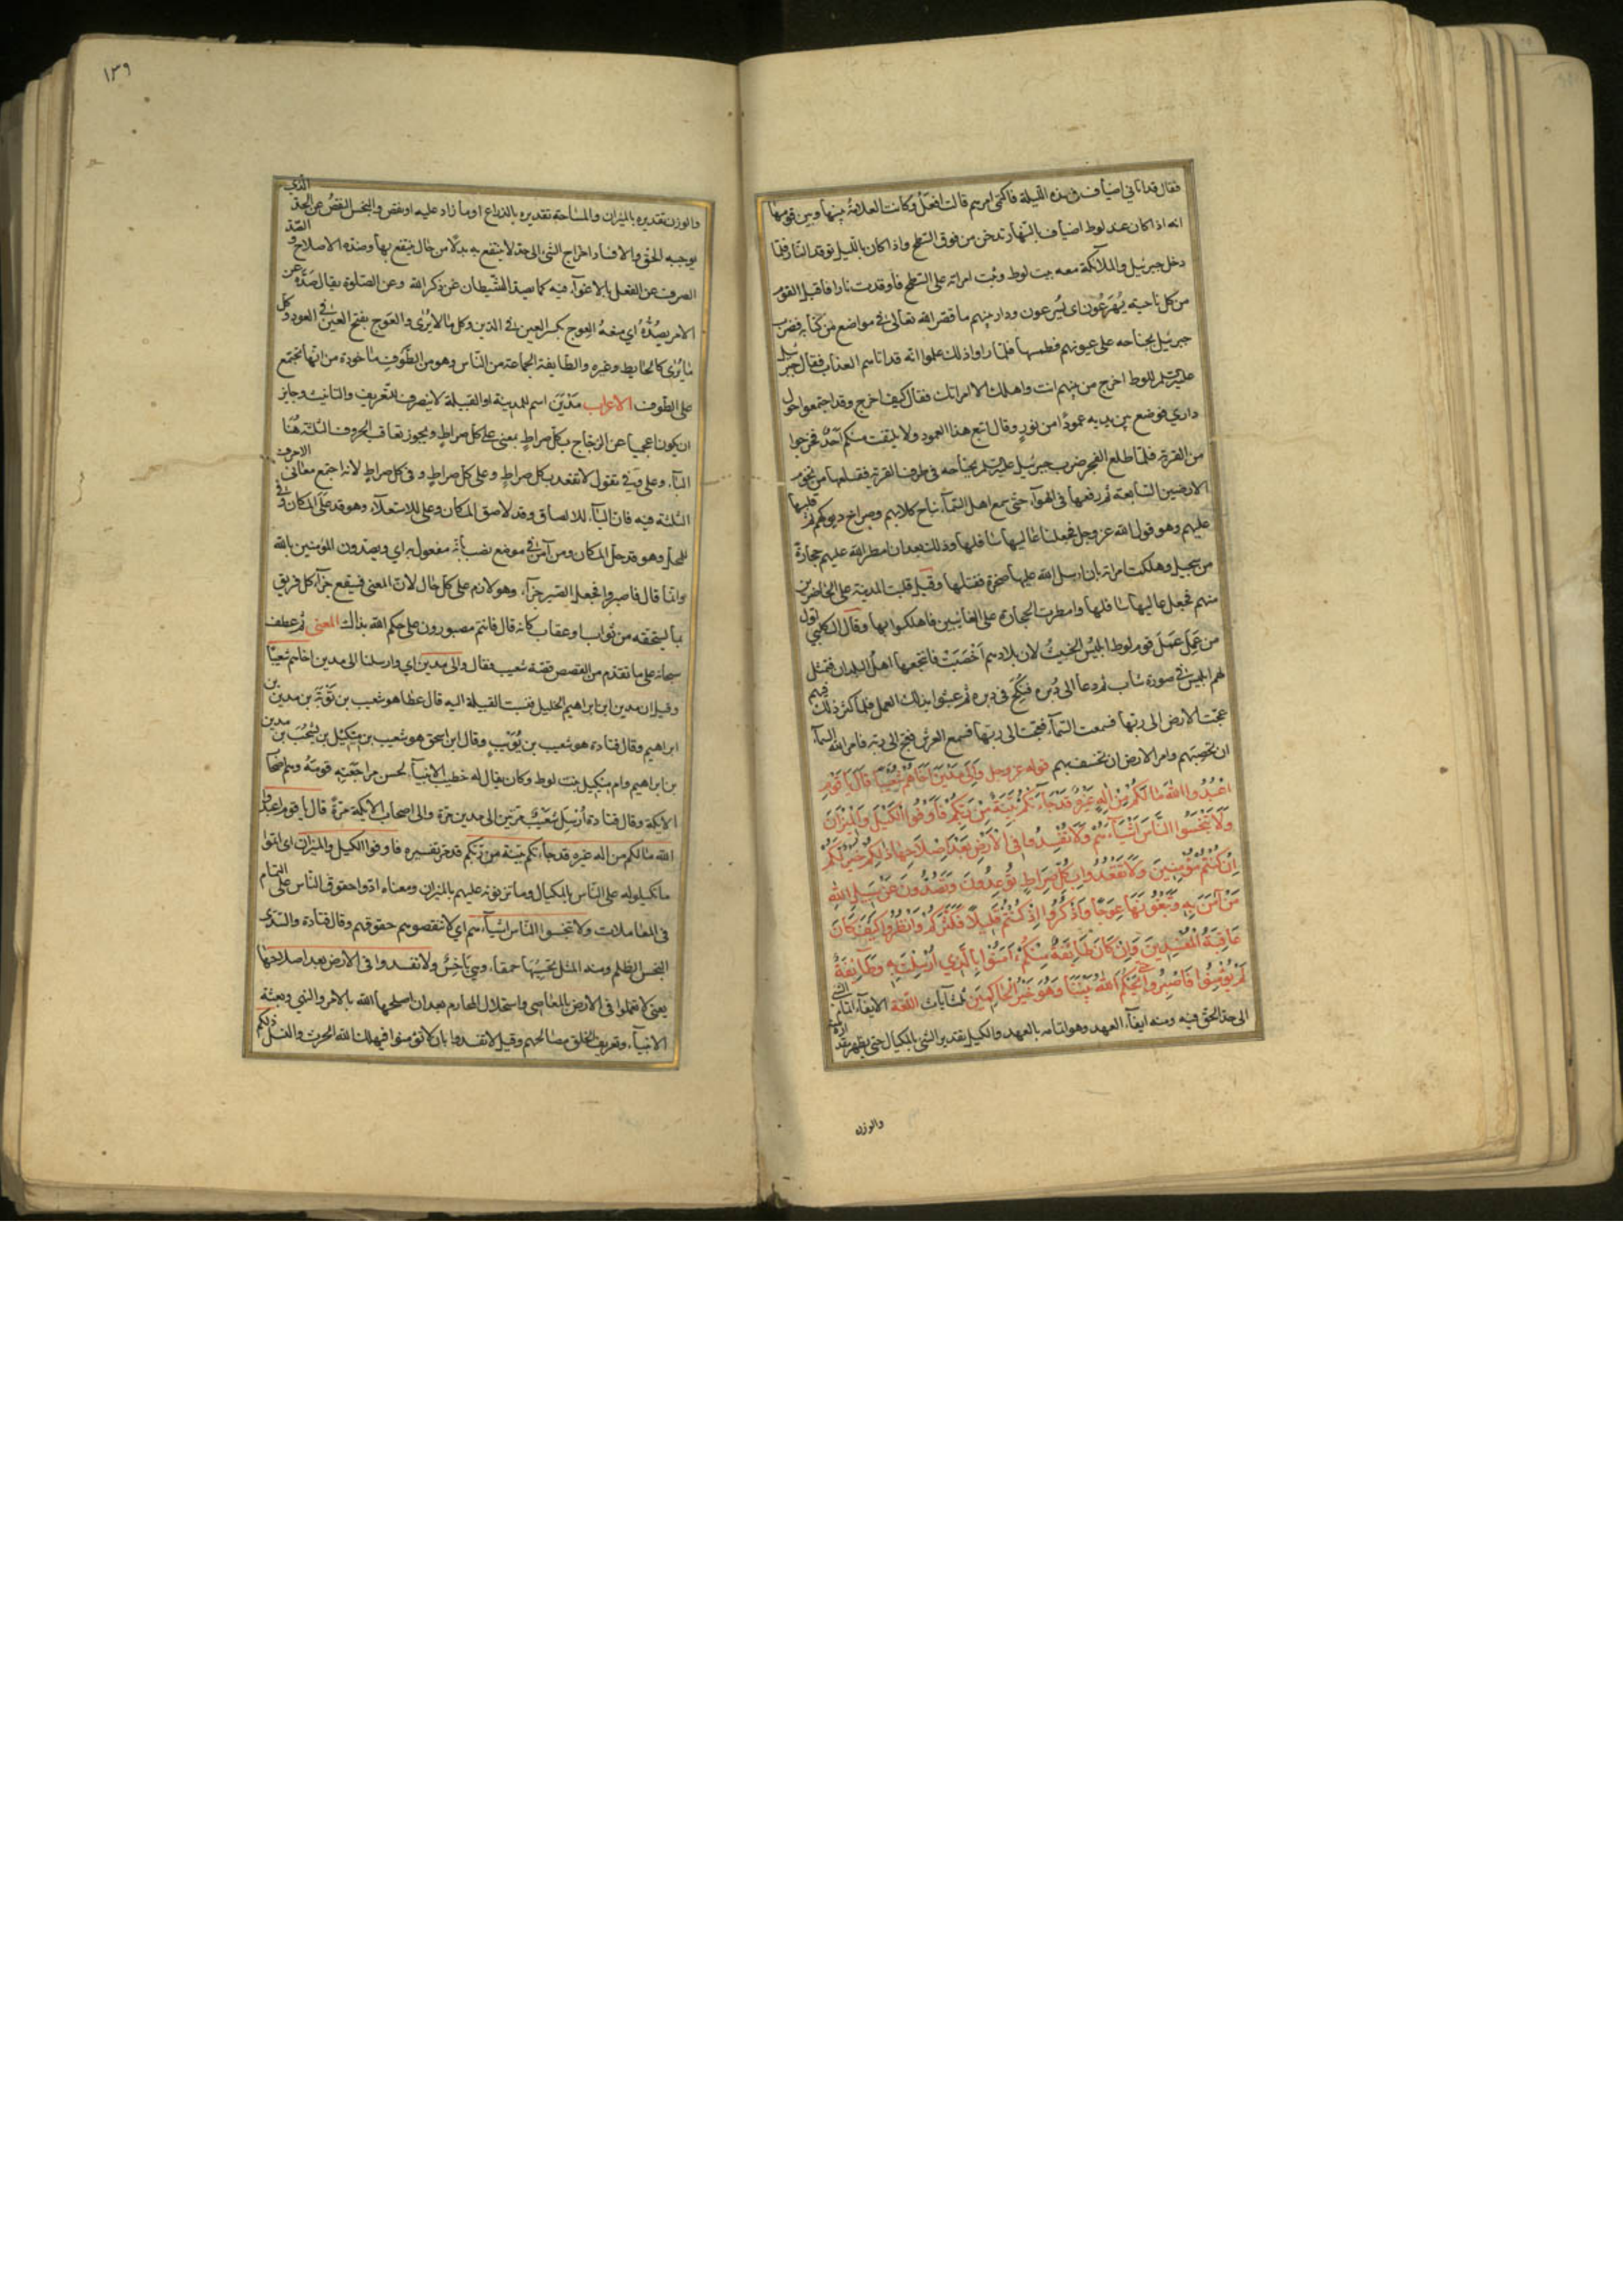 فقال قد اتاني اضياف في هذه الليلة فاكتمى امرهم قالت افعل وكانت العلامة بينها وبين قومها
انه اذا كان عند لوط اضياف بالنهار تدخن من فوق السطح واذا كان بالليل توقد النار فلما
دخل جبرئيل والملائكة معه بيت لوط وثبت امراته على السطح فاوقدت نارا فاقبل القوم
من كل ناحية يهرعون اى يسرعون ودار بينهم ما قص الله تعالى فى مواضع من كتابه فضرب
جبرئيل بجناحه على عيونهم فطمسها فلما راوا ذلك علموا انه قد اتاهم العذاب فقال جبرئيل
للوط اخرج من بينهم انت واهلك الا امراتك فقال كيف اخرج وقد اجتمعوا حول
داري فوضع بين يديه عمودا من نور وقال اتبع هذا العمود ولا يلتفت منكم احد فخرجوا
من القرية فلما طلع الفجر ضرب جبرئيل بجناحه فى طرف القرية فقلعها من تخوم
الارضين السابعة ثم رفعها فى الهوآء حتى سمع اهل السمآء نباح كلابهم وصراخ ديوكهم ثم قلبها
عليهم وهو قول الله عز وجل فجعلنا عاليها سافلها وذلك بعد ان امطر الله عليهم حجارة
من سجيل وهلكت امراته بان ارسل الله عليها صخرة فقتلها وقيل قلبت المدينة على الحاضرين
منهم فجعل عاليها سافلها وامطرت الحجارة على الغائبين فاهلكوا بها وقال الكلبي اول
من عمل عمل قوم لوط ابليس الخبيث لان بلادهم اخصبت فانتجعها اهل البلدان فتمثل
لهم ابليس فى صورة شاب ثم دعا الى دبره فنكح فى دبره ثم عبثوا بذلك العمل فلما كثر ذلك فيهم
عجت الارض الى ربها فسمعت السمآء فعجت الى ربها فسمع العرش فعج الى ربه فامر الله السمآء
ان تحصبهم وامر الارض ان تخسف بهم قوله عز وجل وَاِلَى مَدْيَنَ اَخَاهُمْ شُعَيْبًا قَالَ يَا قَوْمِ
اعْبُدُوا اللهَ مَا لَكُمْ مِنْ اِلٰهٍ غَيْرُهُ قَدْ جَاءَتْكُمْ بَيِّنَةٌ مِنْ رَبِّكُمْ فَاَوْفُوا الْكَيْلَ وَالْمِيزَانَ
وَلَا تَبْخَسُوا النَّاسَ اَشْيَاءَهُمْ وَلَا تُفْسِدُوا فِى الْاَرْضِ بَعْدَ اِصْلَاحِهَا ذٰلِكُمْ خَيْرٌ لَكُمْ
اِنْ كُنْتُمْ مُؤْمِنِينَ وَلَا تَقْعُدُوا بِكُلِّ صِرَاطٍ تُوعِدُونَ وَتَصُدُّونَ عَنْ سَبِيلِ اللهِ
مَنْ آمَنَ بِهِ وَتَبْغُونَهَا عِوَجًا وَاذْكُرُوا اِذْ كُنْتُمْ قَلِيلًا فَكَثَّرَكُمْ وَانْظُرُوا كَيْفَ كَانَ
عَاقِبَةُ الْمُفْسِدِينَ وَاِنْ كَانَ طَائِفَةٌ مِنْكُمْ اٰمَنُوا بِالَّذِي اُرْسِلْتُ بِهِ وَطَائِفَةٌ
لَمْ يُؤْمِنُوا فَاصْبِرُوا حَتَّى يَحْكُمَ اللهُ بَيْنَنَا وَهُوَ خَيْرُ الْحَاكِمِينَ ثلث آيات اللغة الايفآء اتمام الشى
الى حد الحق فيه ومنه ايفآء العهد وهو اتمامه بالعهد والكيل تقدير الشى بالمكيال حتى يظهر
والوزن
١٣٩
والوزن تقديره بالميزان والمساحة تقديره بالذراع او ما زاد عليه او نقص والبخس النقص عن الحد الذي
يوجبه الحق والافساد اخراج الشى الى حد لا ينتفع به بدلا من حال ينتفع بها وضده الاصلاح والصد
الصرف عن الفعل بالاغوآء فيه كما يصد الشيطان عن ذكر الله وعن الصلوة يقال صده عن
الامر يصده اي منعه العوج بكسر العين فى الدين وكل ما لا يرى والعوج بفتح العين فى العود وكل
ما يرى كالحايط وغيره والطايفة الجماعة من الناس وهو من الطوف ماخوذة من انها تجتمع
على الطوف الاعراب مدين اسم المدينة او القبيلة لا ينصرف للتعريف والتانيث وجايز
ان يكون اعجميا عن الزجاج بكل صراط بمعنى على كل صراط ويجوز تعاقب الحروف الثلثة هنا
البآء وعلى وفى تقول لا تقعد بكل صراط وعلى كل صراط وفى كل صراط لانه اجتمع معانى الاحرف
الثلثة فيه فان البآء للالصاق وقد لاصق المكان وعلى للاستعلآء وهو قد علا المكان وفى
للمحل وهو قد حل المكان ومن آمن فى موضع نصب بانه مفعول به اي وتصدون المؤمنين بالله
وانما قال فاصبروا فجعل الصبر جزآء وهو لازم على كل حال لان المعنى فسيقع جزآء كل فريق
بما يستحقه من ثواب او عقاب كانه قال فانتم مصبورون على حكم الله بذلك المعنى ثم عطف
سبحانه على ما تقدم من القصص قصة شعيب فقال والى مدين اي وارسلنا الى مدين اخاهم شعيبا
وقيل ان مدين ابن ابراهيم الخليل فنسبت القبيلة اليه قال عطا هو شعيب بن توبة بن مدين بن
ابراهيم وقال قتادة هو شعيب بن بويب وقال ابن اسحق هو شعيب بن ميكيل بن يشحب بن مدين
بن ابراهيم وام ميكيل بنت لوط وكان يقال له خطيب الانبيآء لحسن مراجعته قومه وهم اصحاب
الايكة وقال قتادة ارسل شعيب مرتين الى مدين مرة والى اصحاب الايكة مرة قال يا قوم اعبدوا
الله ما لكم من اله غيره قد جآءتكم بينة من ربكم قد مر تفسيره فاوفوا الكيل والميزان اى اتموا
ما تكيلونه على الناس بالمكيال وما تزنونه عليهم بالميزان ومعناه ادوا حقوق الناس على التمام
فى المعاملات ولا تبخسوا الناس اشيآءهم اي لا تنقصوهم حقوقهم وقال قتادة والسدى
البخس الظلم ومنه المثل تحسبها حمقآء وهي باخس ولا تفسدوا فى الارض بعد اصلاحها
يعنى لا تعملوا فى الارض بالمعاصى واستحلال المحارم بعد ان اصلحها الله بالامر والنهى وبعثة
الانبيآء وتعريف الخلق مصالحهم وقيل لا تفسدوا بان لا تؤمنوا فيهلك الله الحرث والنسل ذلكم